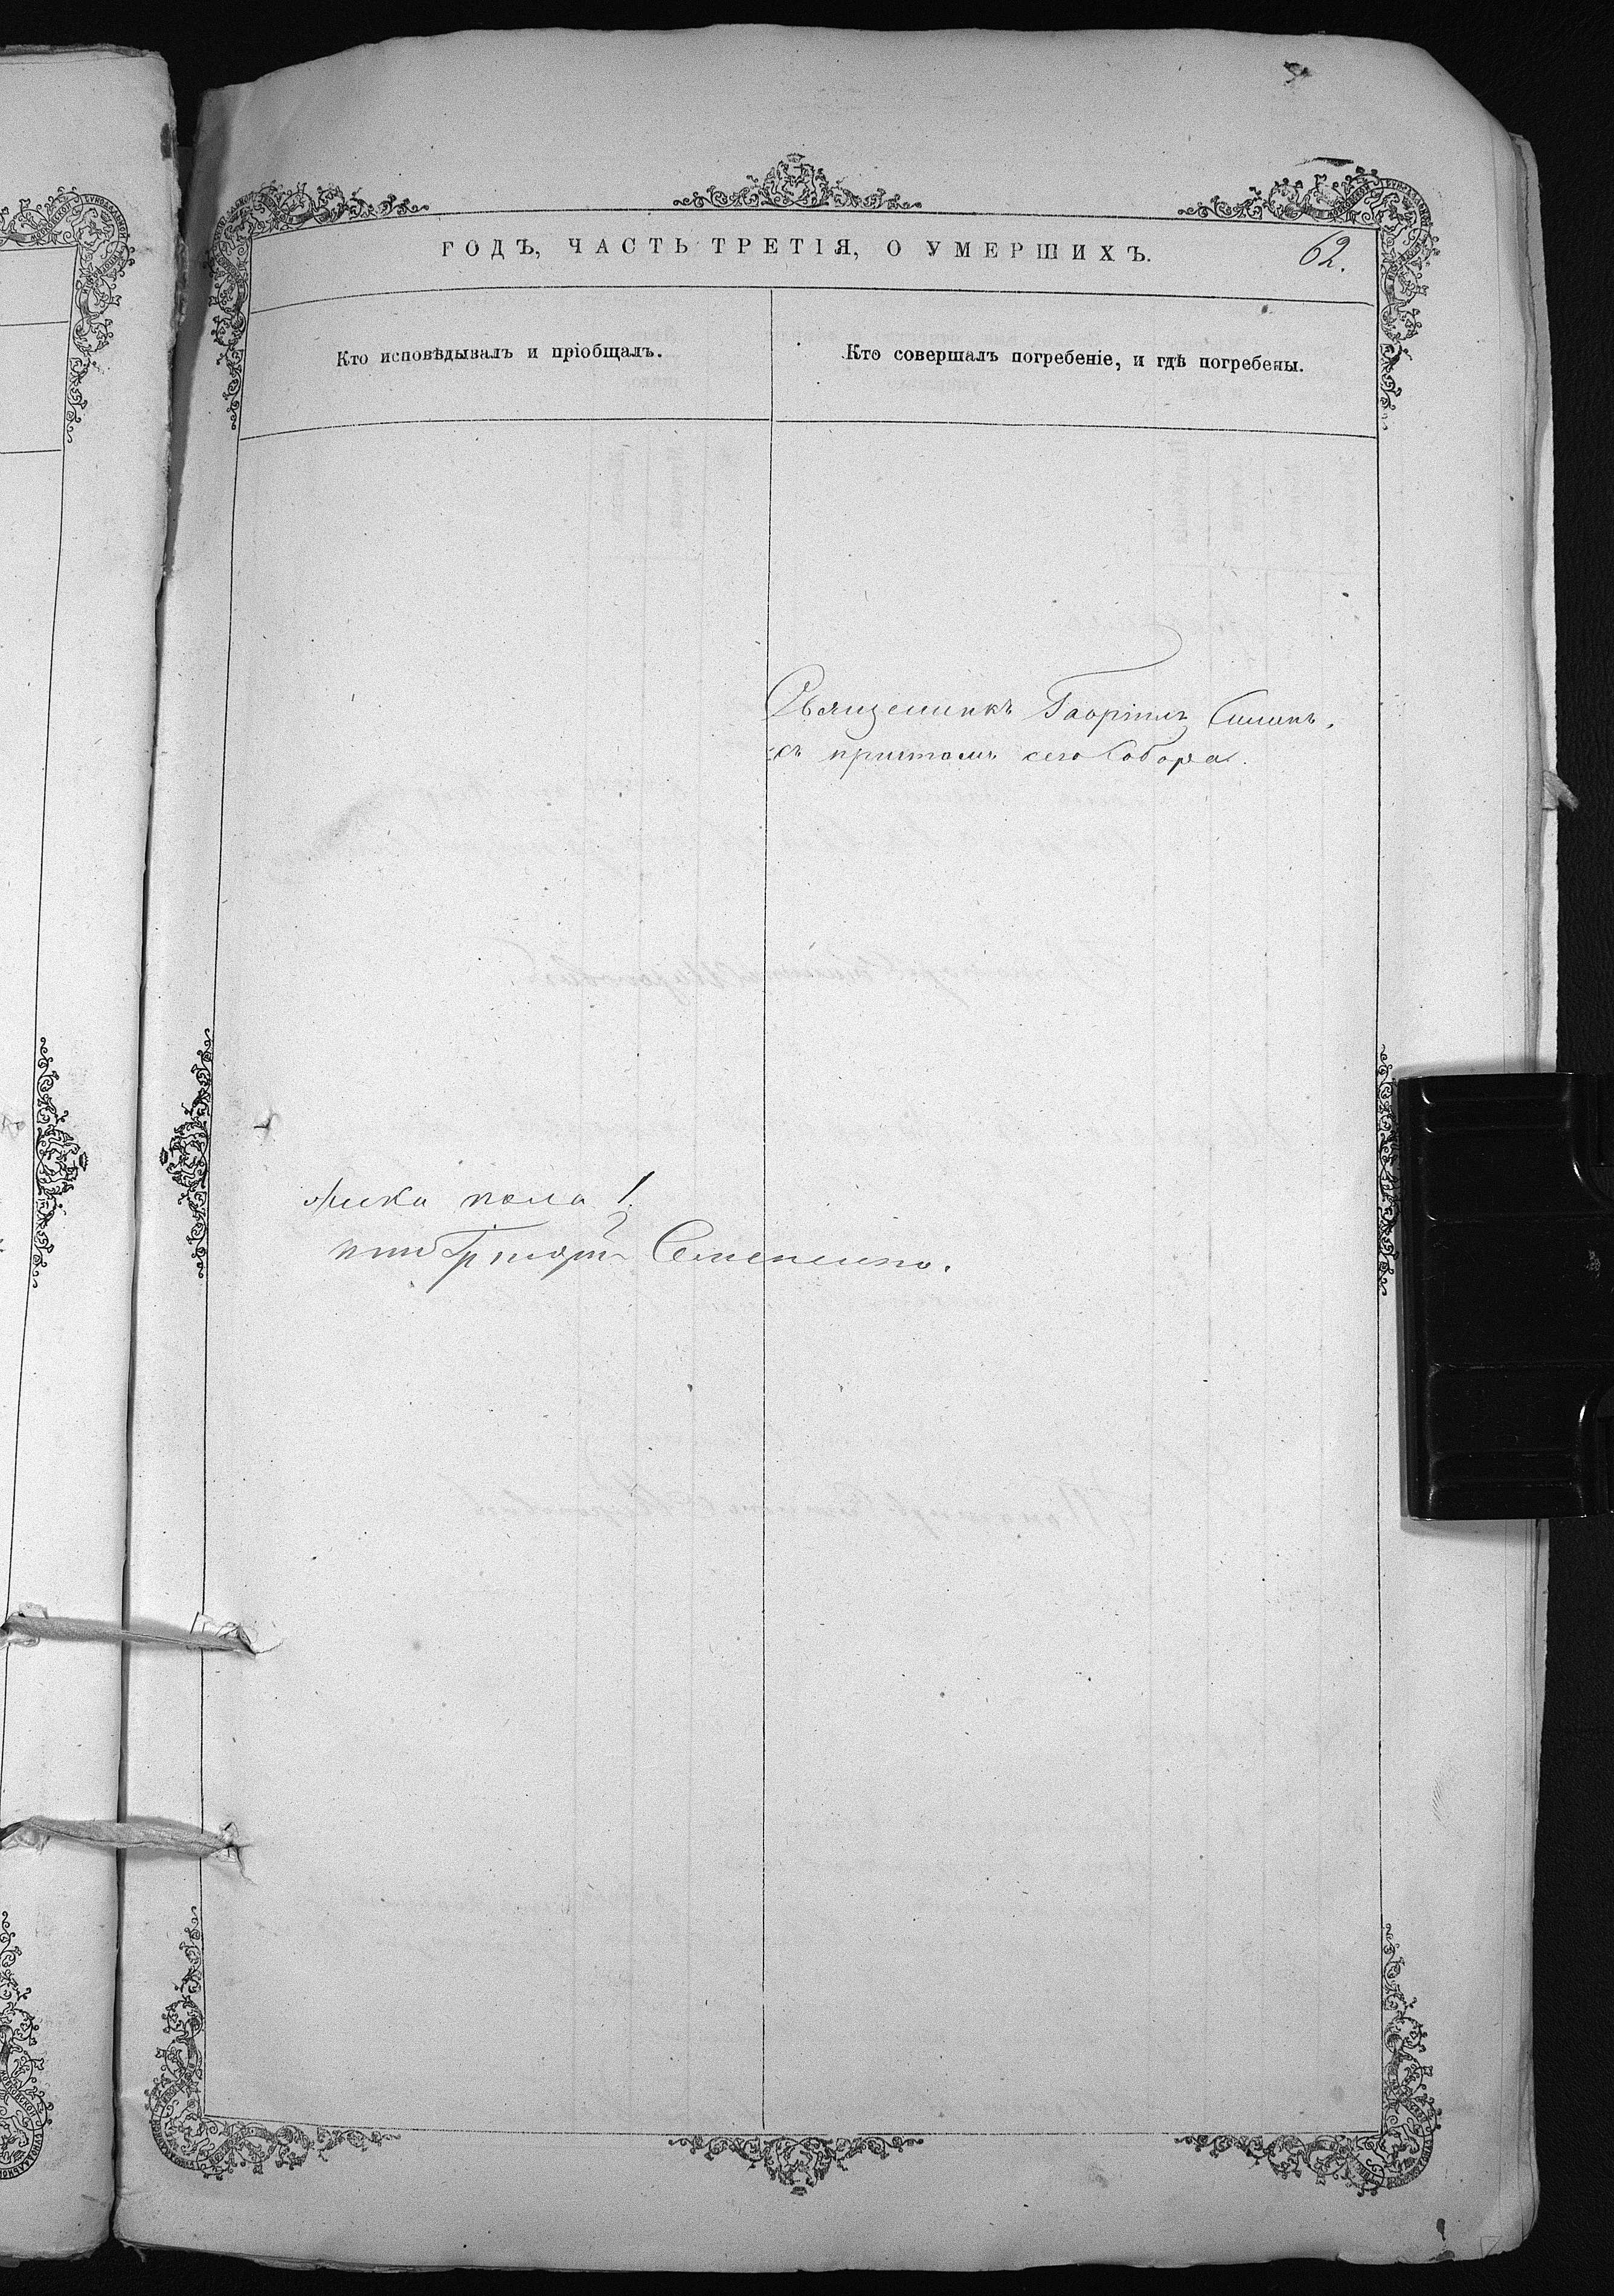 ГОДЪ, ЧАСТЬ ТРЕТІЯ, О УМЕРШИХЪ.
62.
Кто исповѣдывалъ и пріобщалъ.
Кто совершалъ погребеніе, и гдѣ погребены.
Священникъ Гавріилъ
съ причтомъ сего Собора.
пола 1.
Семененко.